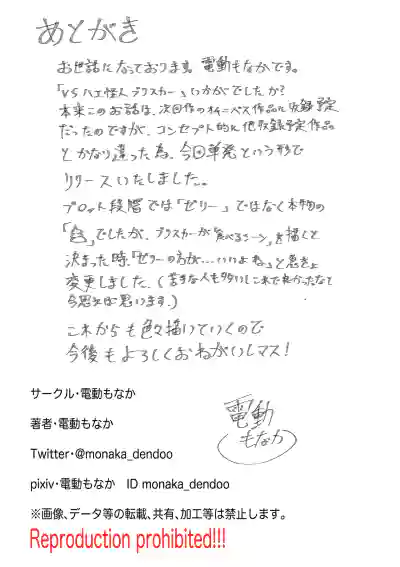 あとがき
お世話になっております。電動もなかです。
「VSハエ怪人ブリスカー」いかがでしたか?
本来このお話は、次回作のオムニバス作品に収録予定
だったのですが、コンセプト的に他収録予定作品
とかなり違った為、今回単発という形で
リリースいたしました。
プロット段階では「ゼリー」ではなく本物の
でしたが、ブリスカーが「食べるシーン」を描くと
決まった時、「ゼリーの方が…いいよね」と
変更しました。(苦手な人も多いしこれで良かったなって
今思えば思います。)
これからも色々描いていくので
今後もよろしくおねがいしマス!
電動
もなか
サークル・電動もなか
著者・電動もなか
Twitter・@monaka_dendoo
pixiv・電動もなか ID monaka_dendoo
※画像、データ等の転載、共有、加工等は禁止します。
Reproduction prohibited!!!